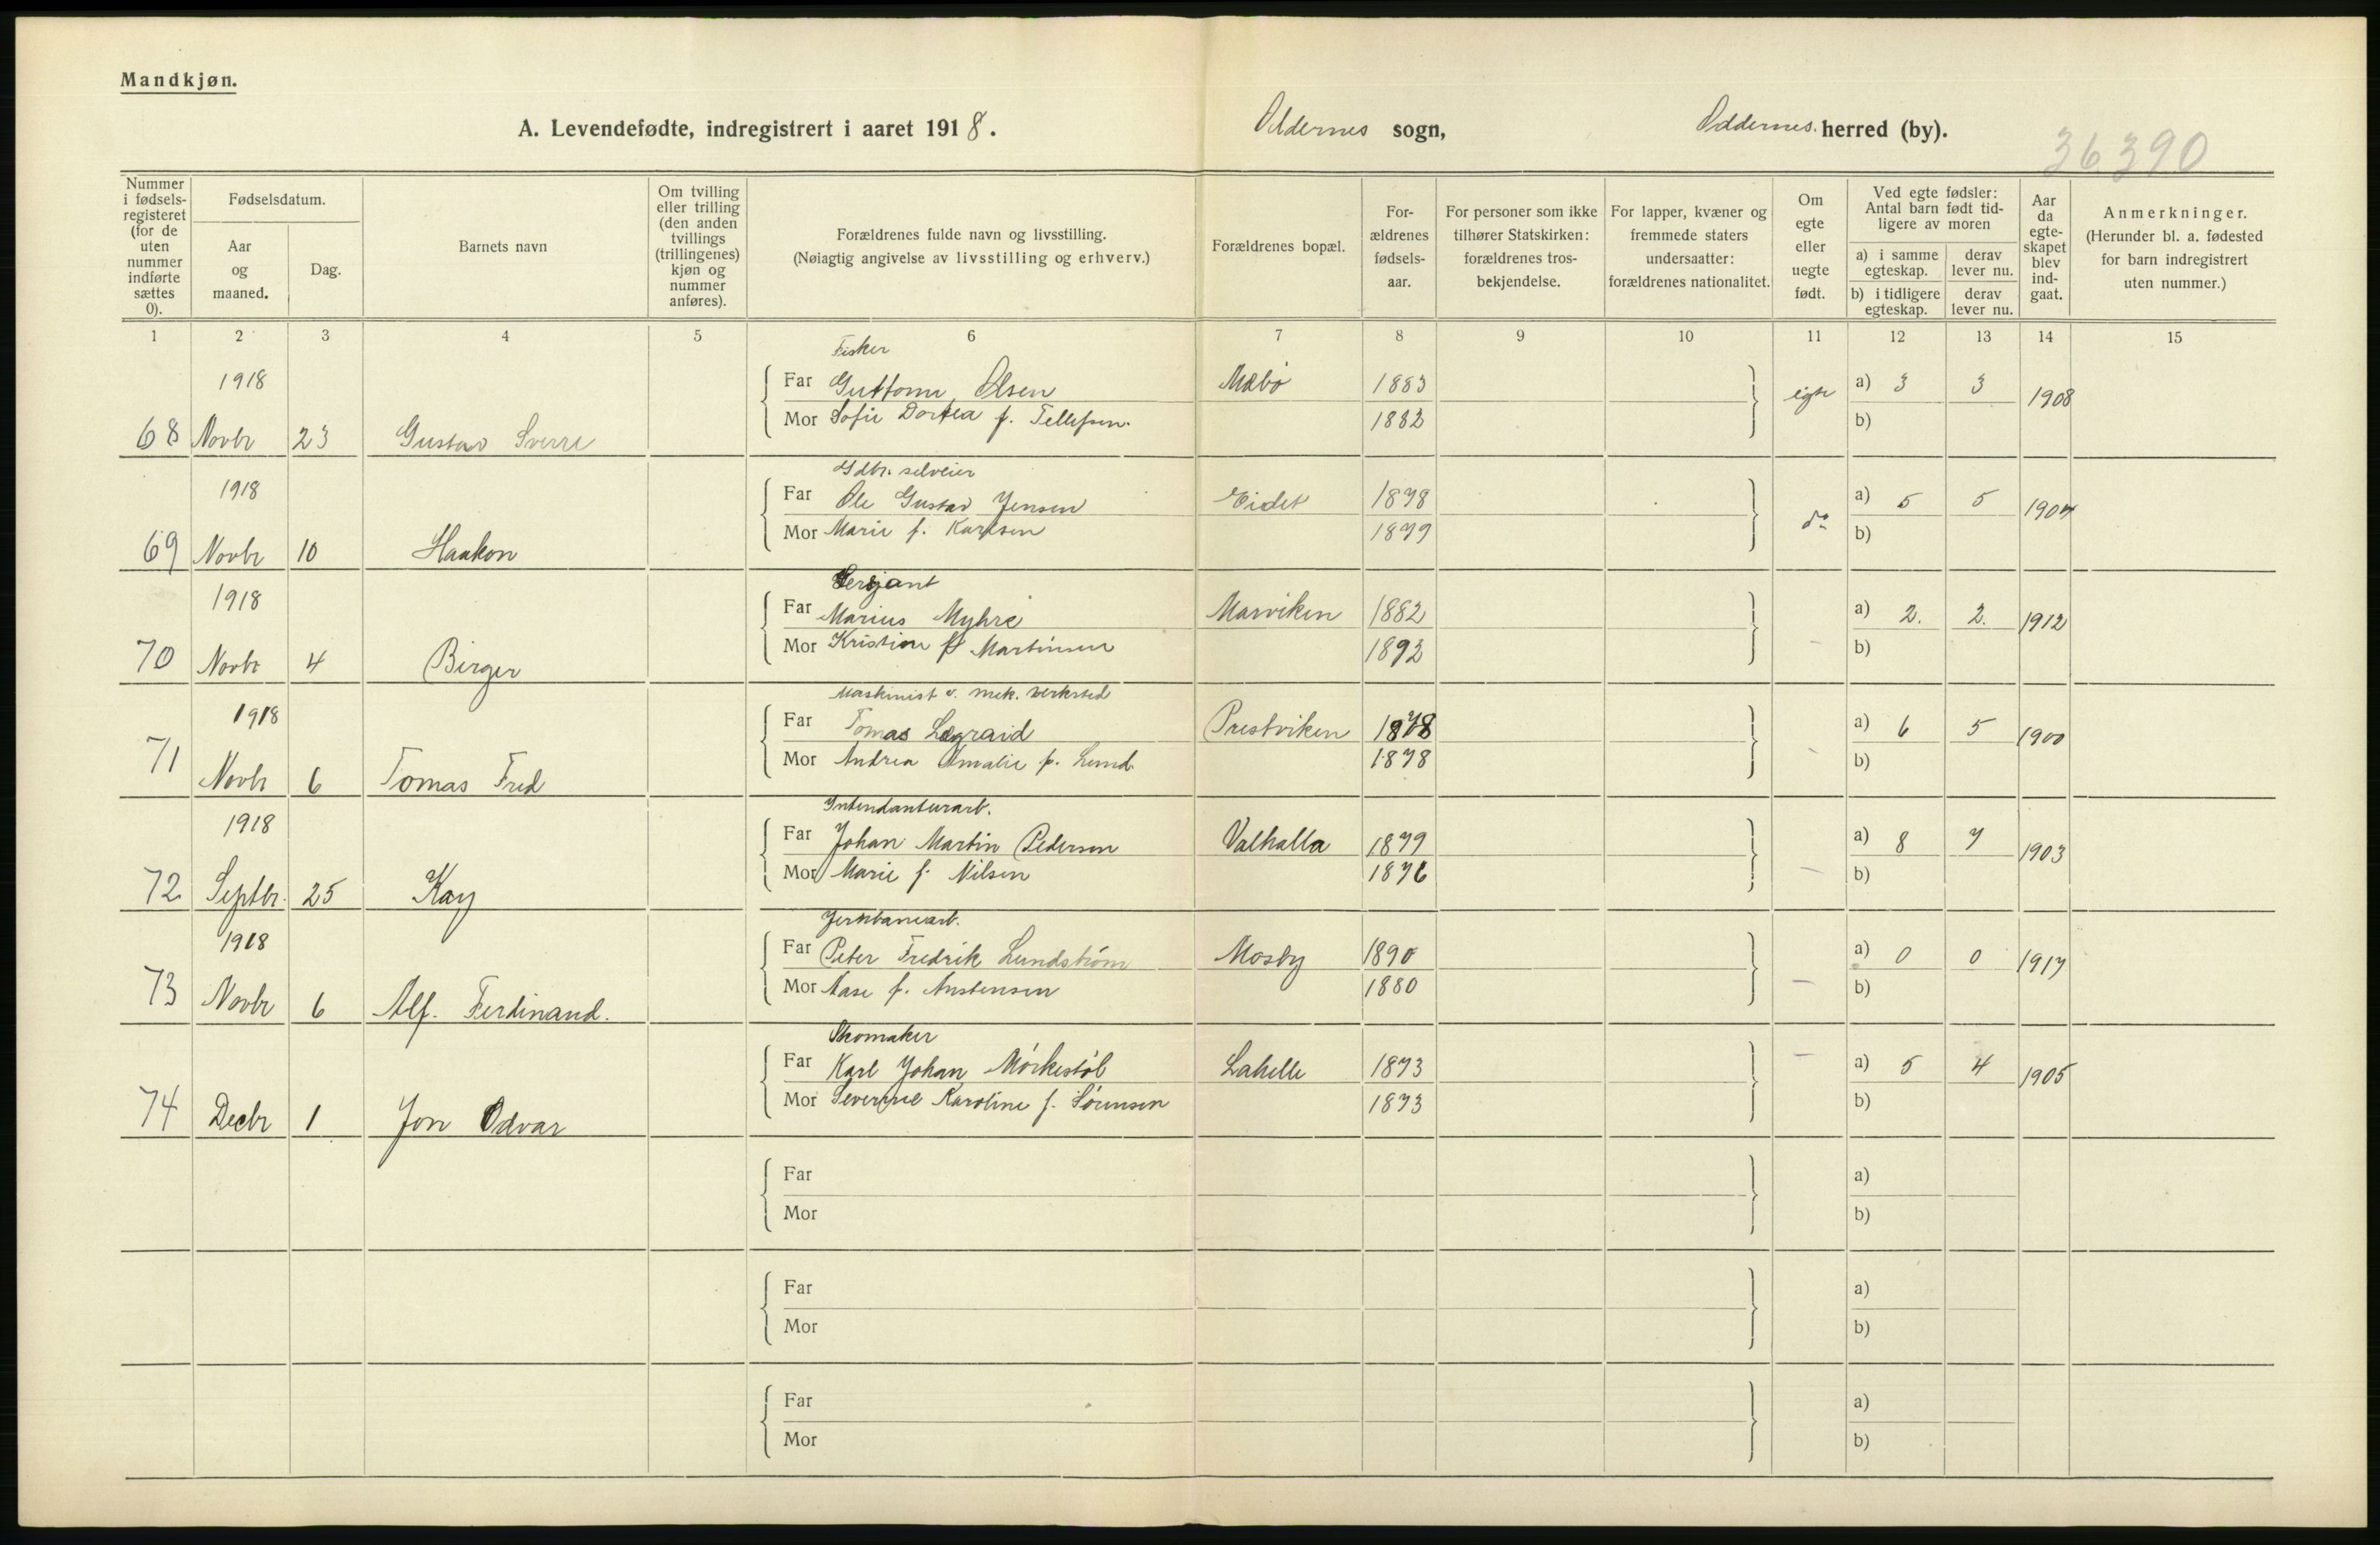 Mandkjøn.
A. Levendefødte, indregistrert i aaret 1918. Oddernes sogn, Oddernes herred (by).
36390
Nummer i fødsels-registeret (for de uten nummer indførte sættes 0).
Fødselsdatum.
Aar og maaned.
Dag.
Barnets navn
Om tvilling eller trilling (den anden tvillings (trillingenes) kjøn og nummer anføres).
Forældrenes fulde navn og livsstilling.
(Nøiagtig angivelse av livsstilling og erhverv.)
Forældrenes bopæl.
For-ældrenes fødsels-aar.
For personer som ikke tilhører Statskirken: forældrenes tros-bekjendelse.
For lapper, kvæner og fremmede staters undersaatter: forældrenes nationalitet.
Om egte eller uegte født.
Ved egte fødsler: Antal barn født tid-ligere av moren
a) i samme egteskap. derav lever nu.
b) i tidligere egteskap. derav lever nu.
Aar da egte-skapet blev ind-gaat.
Anmerkninger.
(Herunder bl. a. fødested for barn indregistrert uten nummer.)
1 2 3 4 5 6 7 8 9 10 11 12 13 14 15
Fisker
1918 Far Guttorm Olsen Mæbø 1883 egte a) 3 3 1908
68 Novbr 23 Gustav Sverre Mor Sofie Dortea f. Tellefsen. 1882 b)
Gdbr. selveier
1918 Far Ole Gustav Jensen Eidet 1878 do a) 5 5 1904
69 Novbr 10 Haakon Mor Marie f. Karlsen 1879 b)
Sersjant
1918 Far Marius Myhre Marviken 1882 a) 2. 2. 1912
70 Novbr 4 Birger Mor Kristine f. Martinsen 1892 b)
Maskinist v. mek. verksted
1918 Far Tomas Lægraid Prestviken 1878 a) 6 5 1900
71 Novbr 6 Tomas Fred Mor Andrea Amalie f. Lund 1878 b)
Intendanturarb.
1918 Far Johan Martin Pedersen Valhalla 1879 a) 8 7 1903
72 Septbr. 25 Kay Mor Marie f. Nilsen 1876 — b)
Jernbanearb.
1918 Far Peter Fredrik Lundstrøm Mosby 1890 a) 0 0 1917
73 Novbr 6 Alf. Ferdinand. Mor Aase f. Austensen 1880 — b)
Skomaker
Far Karl Johan Mørkestøl Lahelle 1873 — a) 5 4 1905
74 Decbr 1 Jon Odvar Mor Severine Karoline f. Sørensen 1873 b)
Far a)
Mor b)
Far a)
Mor b)
Far a)
Mor b)